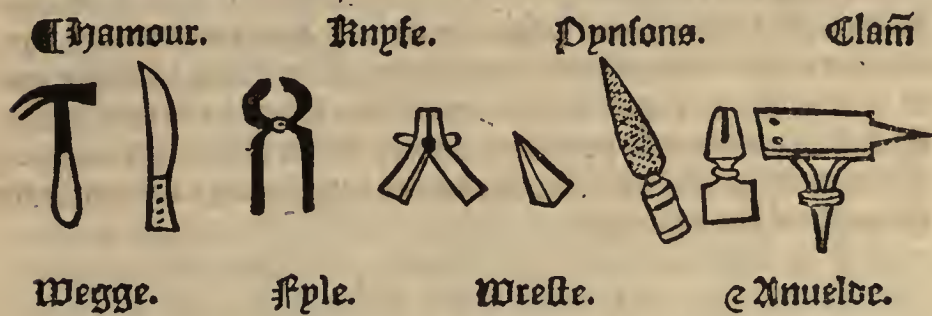 ¶ Hamour. Knyfe. Pynsons. Clam̄
Wegge. Fyle. Wreste. ⁊ Anuelde.